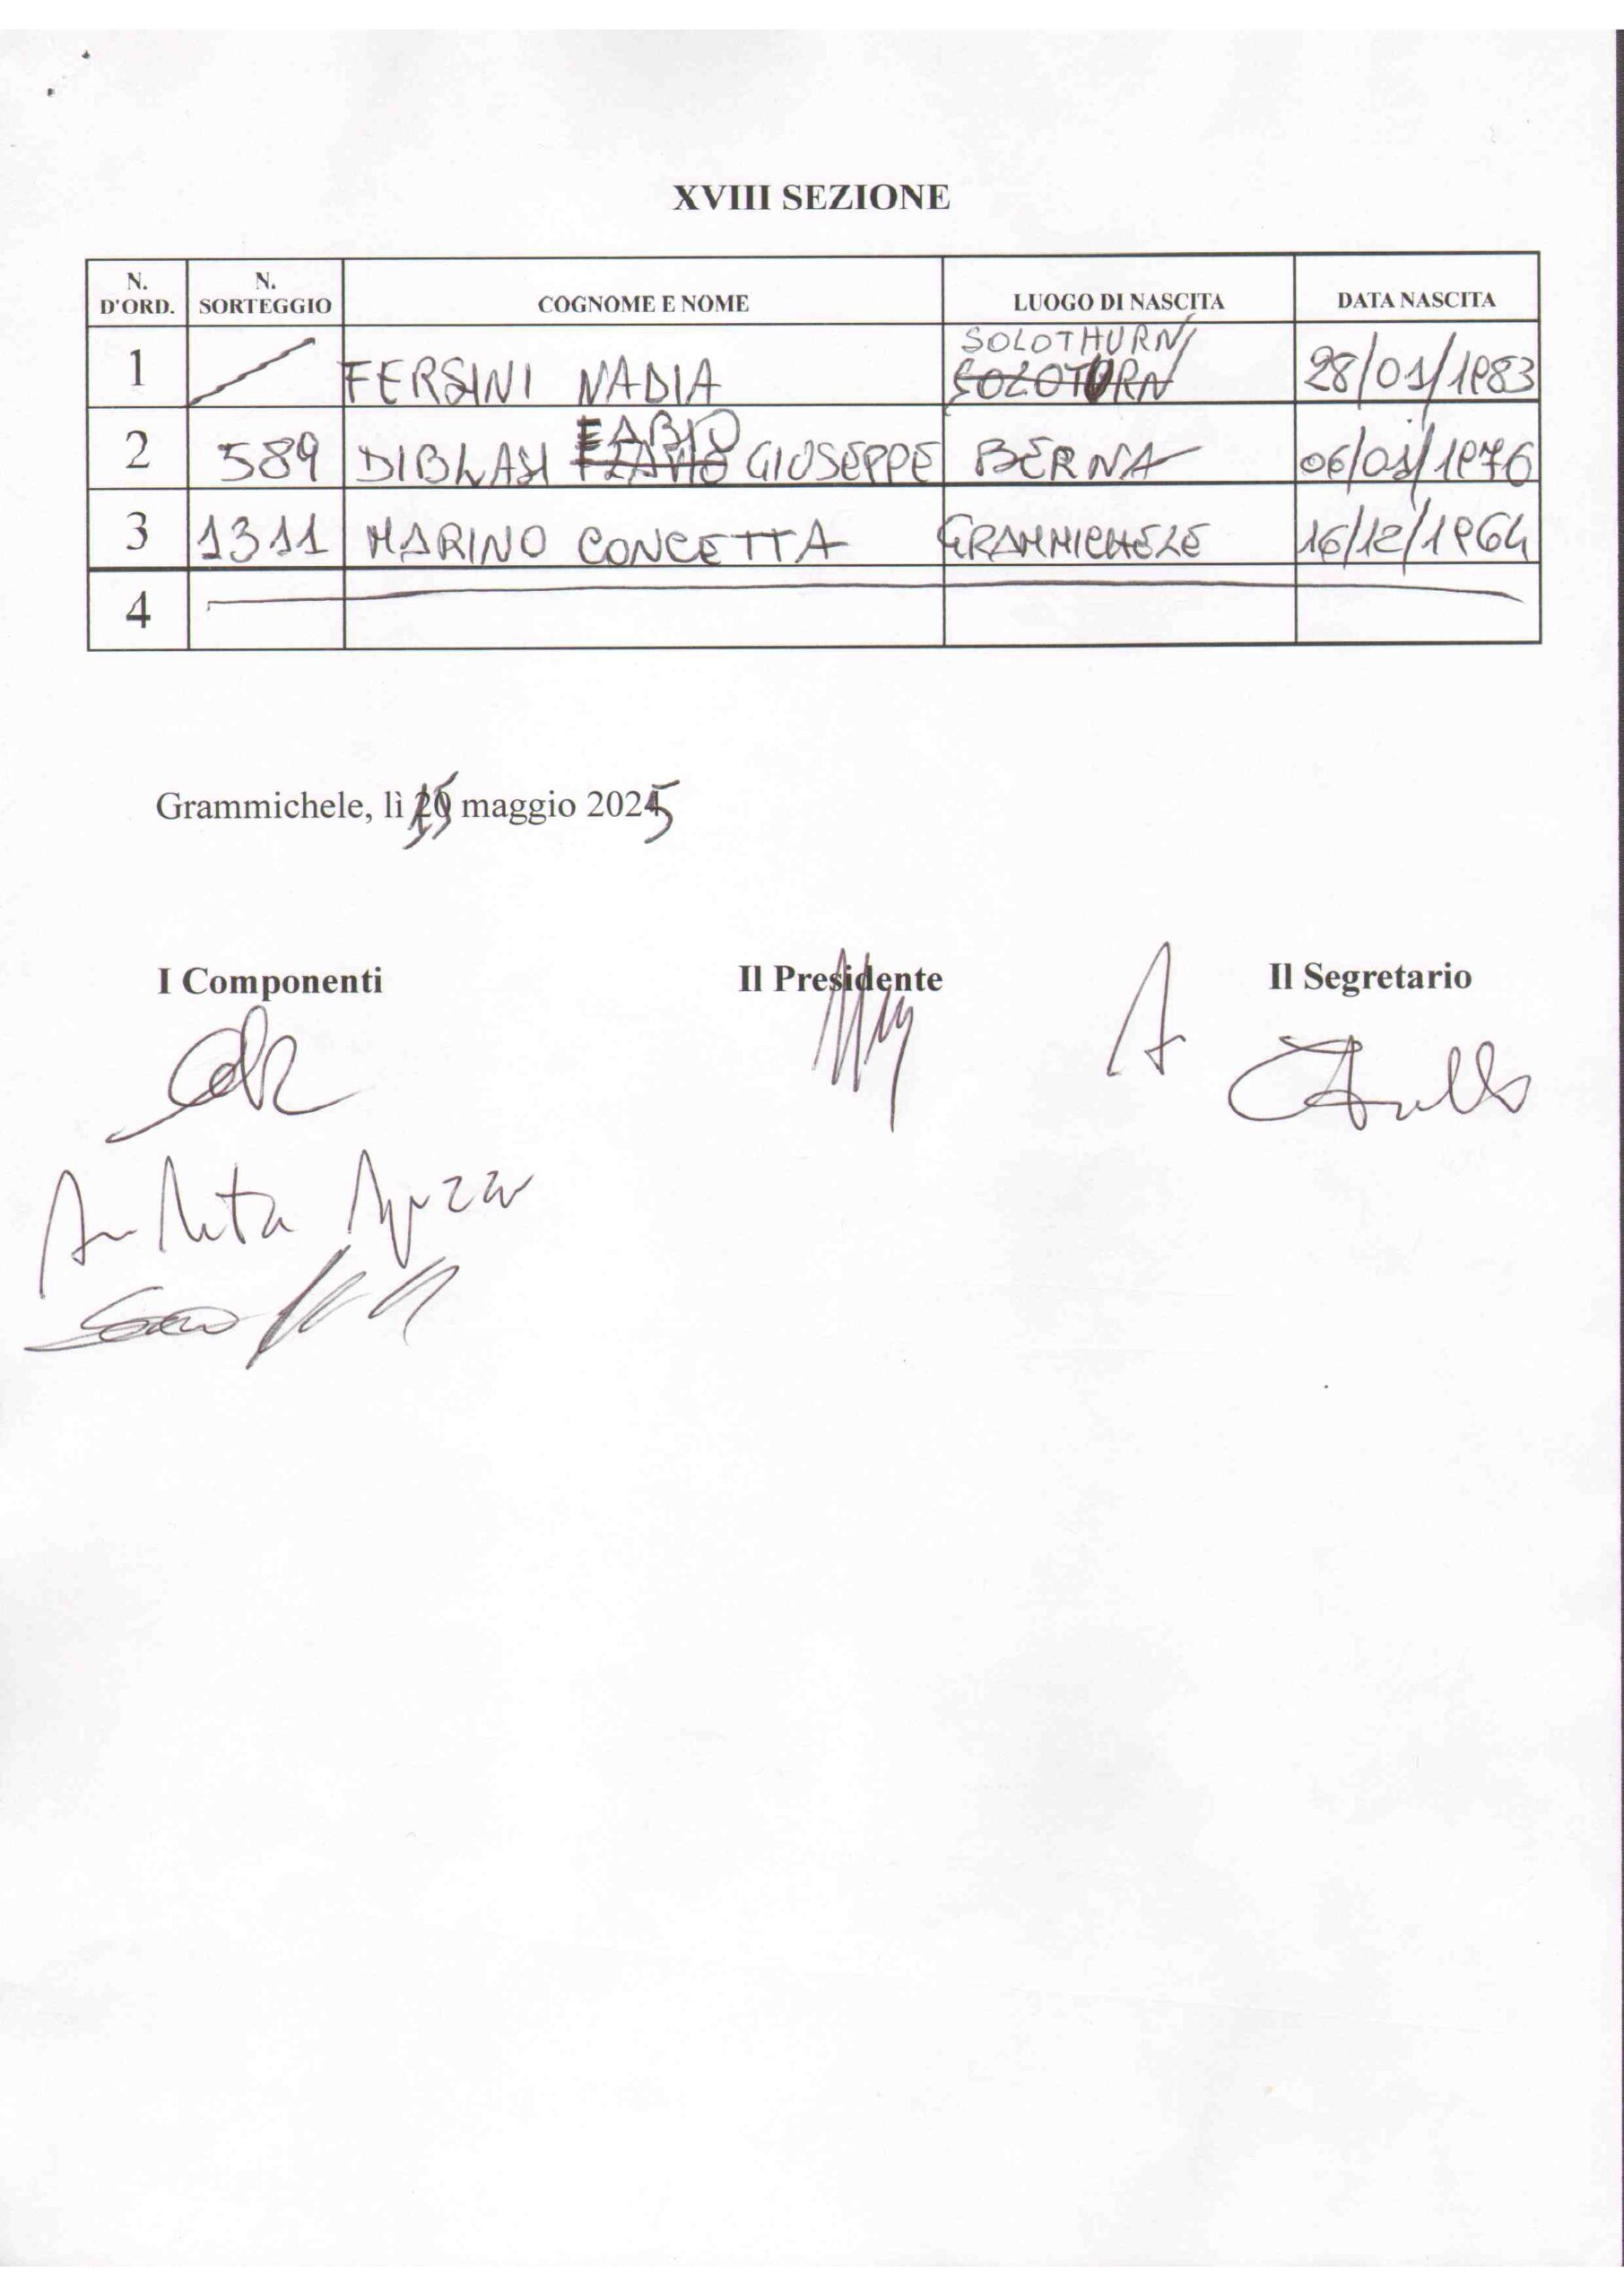 XVIII SEZIONE
N. D'ORD. N. SORTEGGIO COGNOME E NOME LUOGO DI NASCITA DATA NASCITA
SOLOTHURN
1 FERSINI NADIA SOLOTURN 28/01/1983
FABIO
2 589 DIBLASI FLAVIO GIUSEPPE BERNA 06/01/1976
3 1311 MARINO CONCETTA GRAMMICHELE 16/12/1964
4
Grammichele, lì maggio 2025
I Componenti Il Presidente Il Segretario